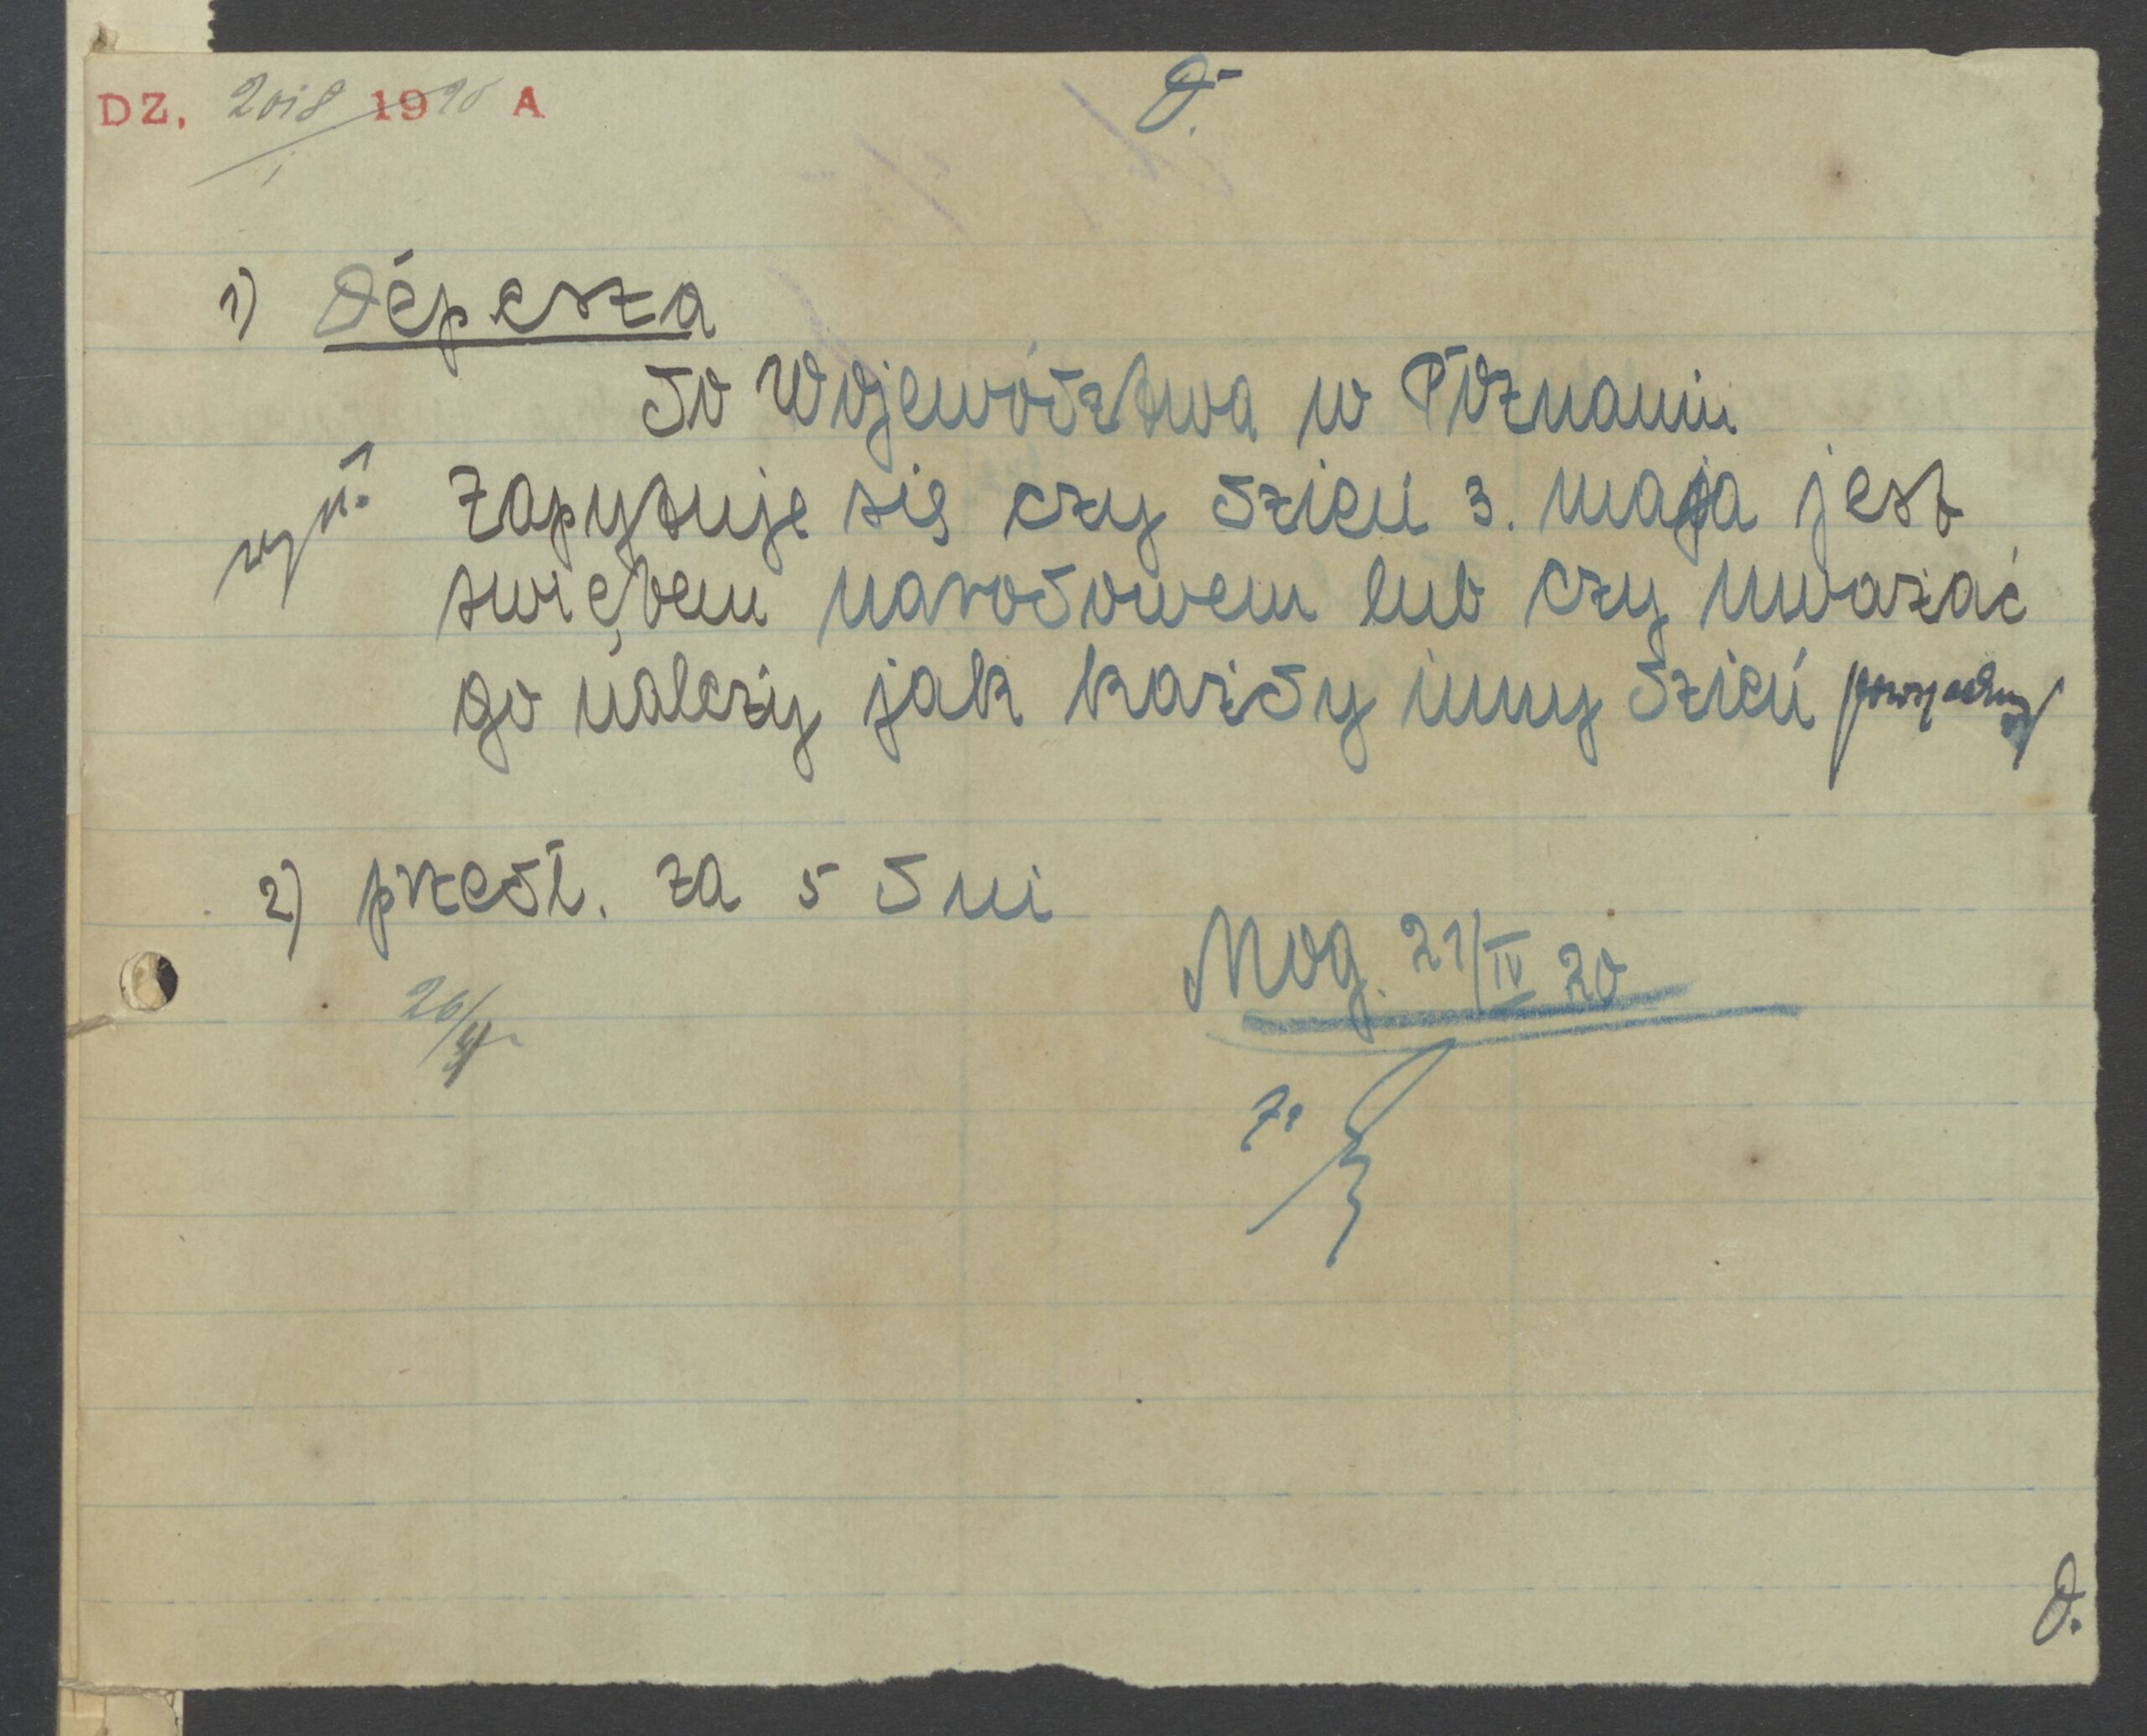 D.
DZ. 2018 1920 A
1
1) Depesza
do Województwa w Poznaniu
Zapytuje się czy dzień 3. maja jest
swiętem narodowem lub czy uważać
go należy jak każdy inny dzień powszedni
2) przedł. za 5 dni
Mog. 21/IV 20
26/4
D.